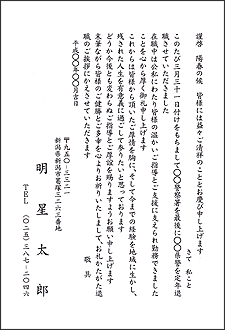 謹啓　陽春の候　皆様には益々ご清祥のこととお慶び申し上げます
さて　私こと
このたび三月三十一日付けをもちまして〇〇警察署を最後に〇〇県警を定年退
職させていただきました
在職中は公私にわたり皆様の温かいご指導とご支援に支えられ勤務できました
ことを心から厚く御礼申し上げます
これからは皆様から頂いたご厚情を胸に、そして今までの経験を地域に生かし、
残された人生を有意義に過ごして参りたいと思っております
どうか今後とも変わらぬご指導とご厚誼を賜りますようお願い申し上げます
末筆ながら皆様のご健勝とご多幸を心よりお祈りいたしまして、お礼かたがた退
職のご挨拶にかえさせていただきます
敬　具
平成〇〇年〇〇月吉日
〒九五〇-三三二一
新潟県新潟市葛塚三二六三番地
明　星　太　郎
TEL　(〇二五)三八七-二〇四六